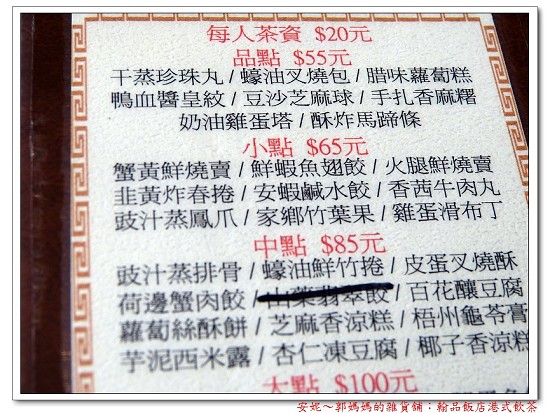 每人茶資 $20元
品點 $55元
干蒸珍珠丸 / 蠔油叉燒包 / 腊味蘿蔔糕
鴨血醬皇紋 / 豆沙芝麻球 / 手扎香麻糬
奶油雞蛋塔 / 酥炸馬蹄條
小點 $65元
蟹黃鮮燒賣 / 鮮蝦魚翅餃 / 火腿鮮燒賣
韭黃炸春捲 / 安蝦鹹水餃 / 香茜牛肉丸
豉汁蒸鳳爪 / 家鄉竹葉果 / 雞蛋滑布丁
中點 $85元
豉汁蒸排骨 / 蠔油鮮竹捲 / 皮蛋叉燒酥
荷邊蟹肉餃 / 山藥翡翠餃 / 百花釀豆腐
蘿蔔絲酥餅 / 芝麻香涼糕 / 梧州龜苓膏
芋泥西米露 / 杏仁凍豆腐 / 椰子香涼糕
大點 $100元
安妮~郭媽媽的雜貨舖:翰品飯店港式飲茶